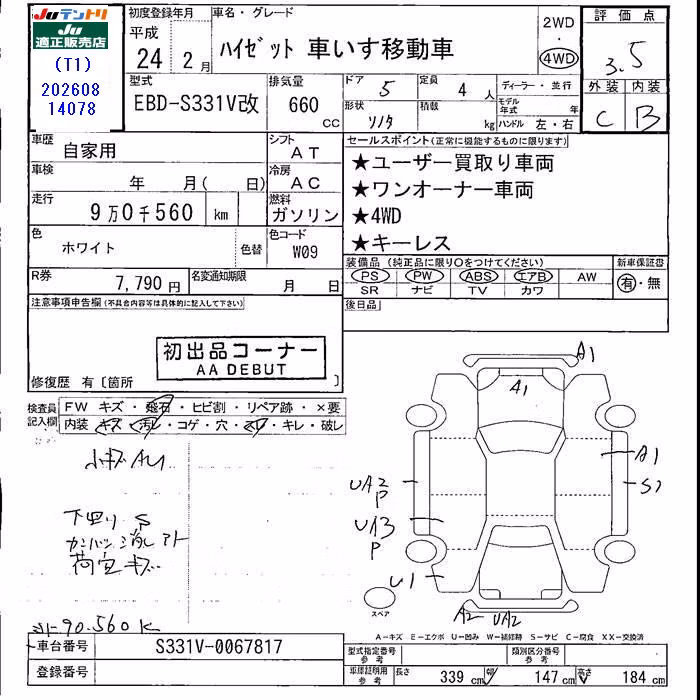 Juテントリ
Ju適正販売店
(T1)
202608
14078
初度登録年月
平成
24 2月
車名・グレード
ハイゼット 車いす移動車
2WD
・
4WD
評価点
3.5
外装 内装
C B
型式
EBD-S331V改
排気量
660 CC
ドア 5
定員 4人
形状 バン
積載 kg
ディーラー・並行
モデル年式 年
ハンドル 左・右
車歴
自家用
シフト
AT
車検
年 月( 日)
冷房
AC
走行
9万0千560 km
燃料
ガソリン
色
ホワイト
色替
色コード
W09
R券
7,790円
名変通知期限
月 日
セールスポイント(正常に機能するものに限ります)
★ユーザー買取り車両
★ワンオーナー車両
★4WD
★キーレス
装備品(純正品に限り○をつけてください)
PS PW ABS エアB AW
SR ナビ TV カワ
新車保証書
有・無
後日品
注意事項申告欄(不具合内容等は具体的に記入して下さい)
初出品コーナー
AA DEBUT
修復歴 有〔箇所 〕
検査員記入欄
FW キズ・飛石・ヒビ割・リペア跡・×要
内装 キズ・汚レ・コゲ・穴・スレ・キレ・破レ
小キズAU
下回りS
カンバン消しアト
荷室キズ
メーター90.560K
A1
A1
A1
S1
UA2
P
UA3
P
U1
A2
UA2
スペア
A-キズ E-エクボ U-凹み W-補修跡 S-サビ C-腐食 XX-交換済
車台番号
S331V-0067817
登録番号
型式指定番号 参考
類別区分番号 参考
車庫証明用 参考
長さ 339 cm 幅 147 cm 高さ 184 cm